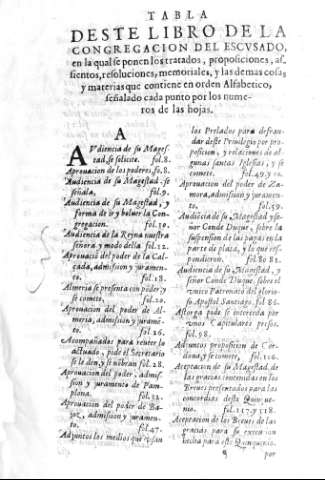 TABLA
DESTE LIBRO DE LA
CONGREGACION DEL ESCVSADO,
en la qual se ponen los tratados, proposiciones, as-
sientos, resoluciones, memoriales, y las demas cosas,
y materias que contiene en orden Alfabetico,
señalado cada punto por los nume-
ros de las hojas.
A
AVdiencia de su Mages-
tad, se solicite. fol.8.
Aprouacion de los poderes, fo.8.
Audiencia de su Magestad. se
señala. fol.9.
Audiencia de su Magestad, y
forma de ir y boluer la Con-
gregacion. fol.10.
Audiencia de la Reyna nuestra
señora y modo della fol.12.
Aprouació del poder de la Cal-
çada, admission y juramen-
to. fol.18.
Almeria se presenta con poder, y
se comete. fol.20.
Aprouacion del poder de Al-
meria, admission y juramē-
to. fol.26.
Acompañados para reuer lo
actuado, pide el Secretario
se le den, y se nōbran fol.28.
Aprouacion del poder, admis-
sion y juramento de Pam-
plona. fol.32.
Aprouacion del poder de Ba-
admission y juramen-
to. fol.47.
Adjuntos los medios que
los Prelados para defrau-
dar deste Priuilegio por pro-
posicion, y relaciones de al-
gunas santas Iglesias, y se
comete. fol.49.y
Aprouacion del poder de Za-
mora, admission y juramen-
to. fol.50.
Audiēcia de su Magestad y se-
ñor Conde Duque, sobre la
suspension de las pagas en la
parte de plata, y lo que res-
pondieron. fol.80 82.
Audiencia de su Magestad, y
señor Conde Duque, sobre el
vnico Patronato del glorio-
so Apostol Santiago. fol 86.
Astorga pide se interceda por
vnos Capitulares presos.
fol.98.
Adjuntos proposicion de Cor-
doua, y se comete, fol.110.
Aceptacion de su Magestad de
las gracias contenidas en los
Breues presentados para las
concordias deste Quinque-
nio. fol.117.y 118.
Aceptacion de los Breues de las
gracias para su execucion
hecha para este Quinquenio.
por